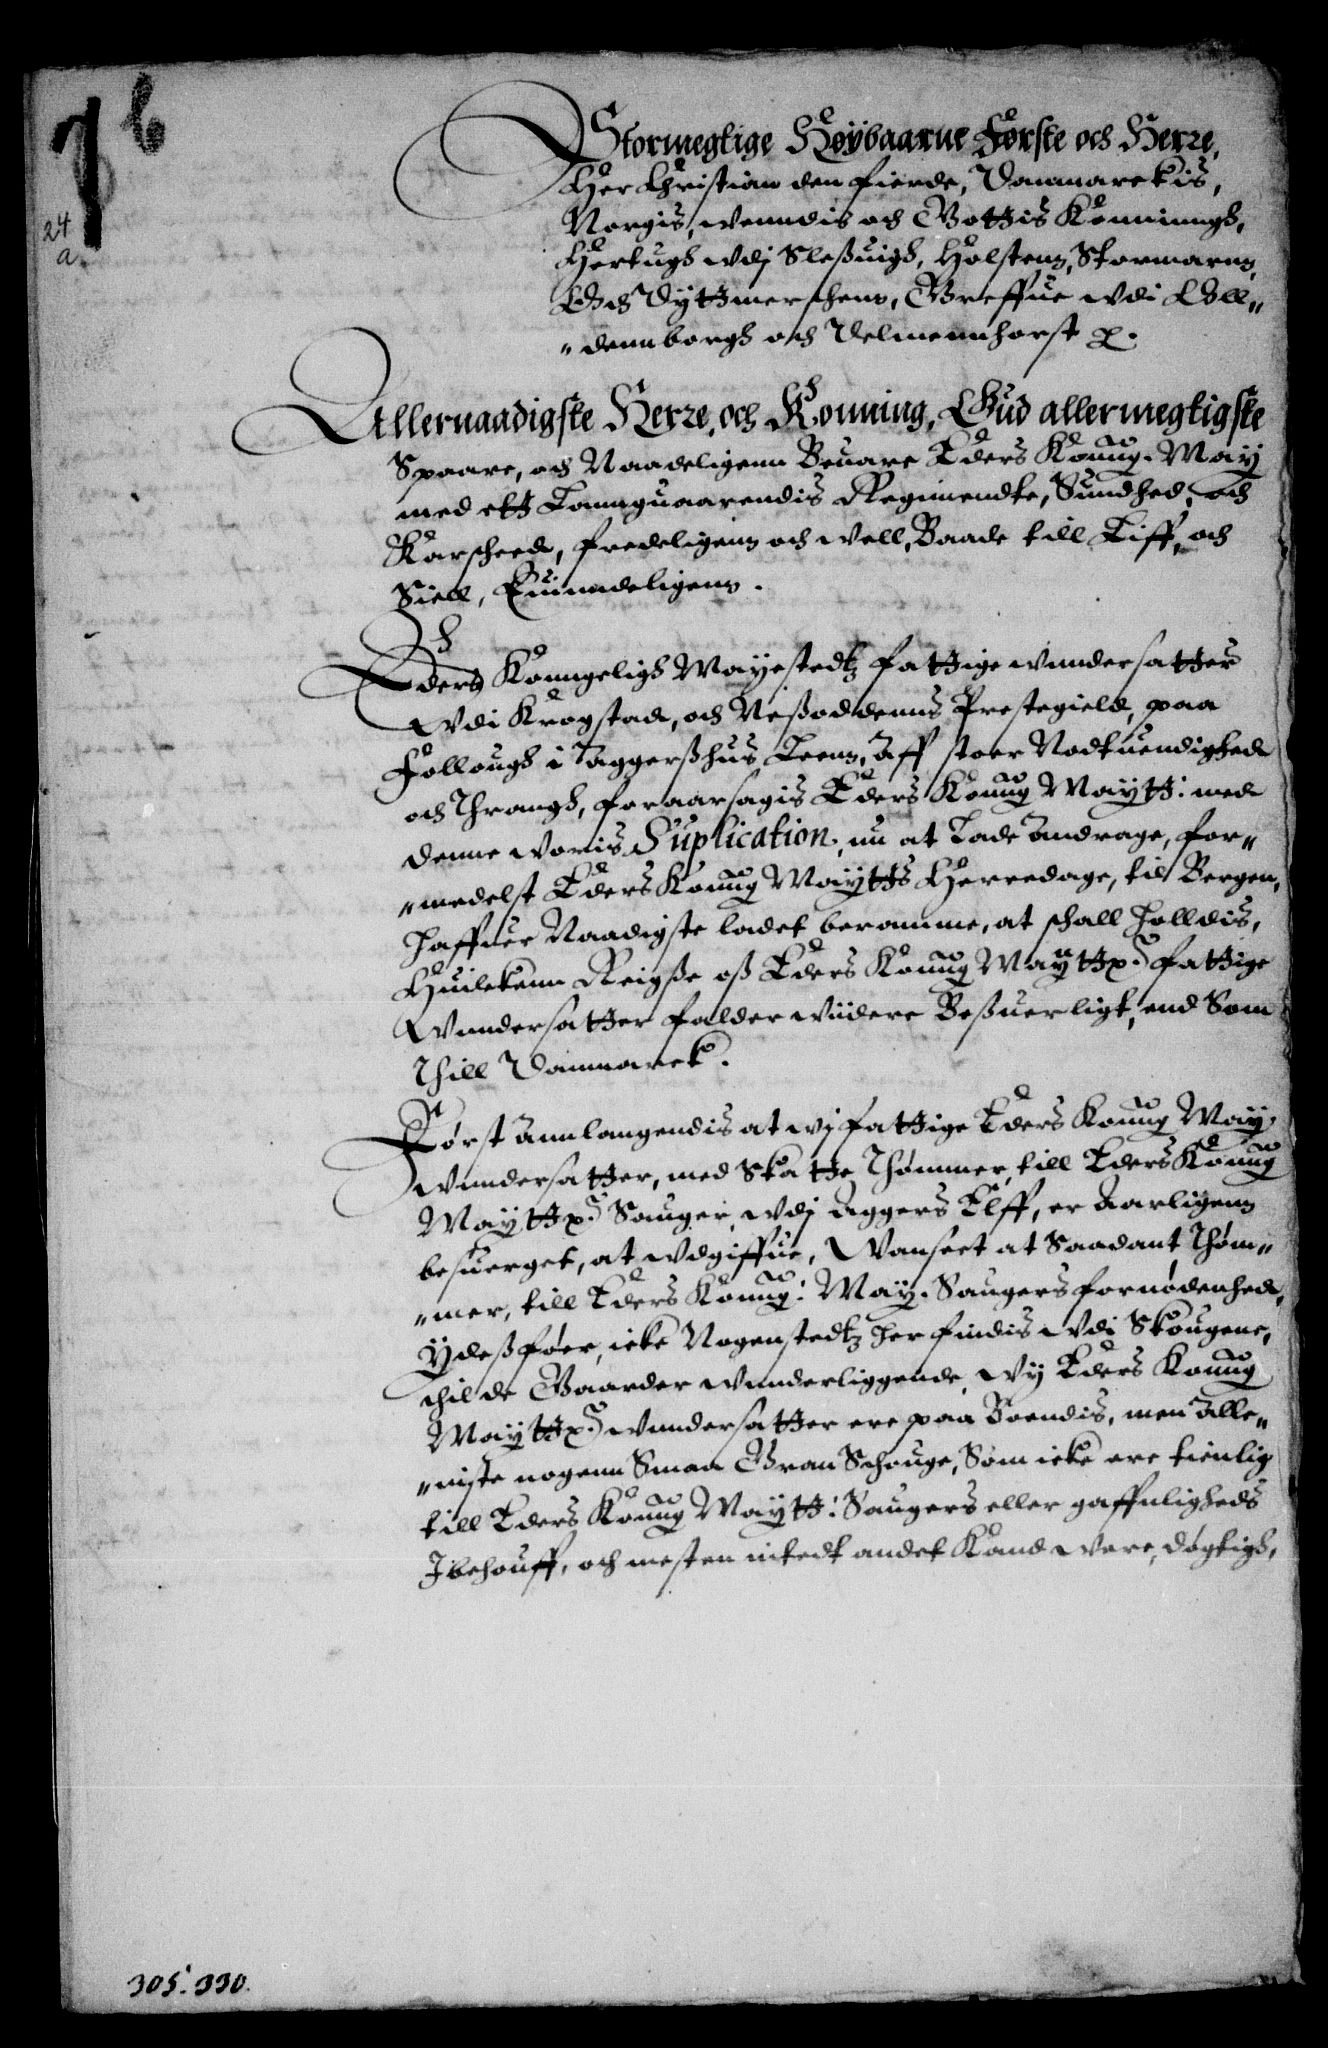 6
24
a
Stormegtige Høÿbaarne Første och Herre,
Her Christian den fierde, Danmarckis,
Norgis, wenndis och Gottis Konningh,
Hertugh wdj Sleßuigh, Holstenn, Stormarnn,
Och Dÿttmerschenn, Greffue wdi Oll„
„dennborgh och Delmennhorst ꝛ.
Allernaadigste Herre, och Konning, Gud allermegtigste
Spaare, och Naadeligenn Beuare Eders Konng. May
med ett Lannguaarendis Regimendte, Sundhed, och
Karscheed, fredeligenn och well, Baade till Liff, och
Siell, Euinndeligenn.
Eders Konngeligh Mayestedtz fattige wnndersatter
Wdi Krogstad, och Neßoddenns Prestegield, paa
Follough i Aggerßhus Leenn, Aff stoer Nodtuendighed
och Thrangh, foraarsagis Eders Konng Maytt: med
denne woris Suplication, nu at Lade Andrage, for„
„medelst Eders Konng Maytts Herredage, til Bergen,
haffuer Naadigste ladet beramme, at schall holldis,
Huilckenn Reigße oß Eders Konng Mayttz. fattige
Wnndersatter falder wiidere Beßuerligt, end Som
Thill Danmarck.
Først Annlangendis at wj fattige Eders Konng May.
wnndersatter, med Skatte Thømmer, till Eders Konng
Mayttz. Sauger, wdj Aggers Elff, er Aarligenn
besuerget, at wdgiffue, Wanseet at Saadant Thøm„
„mer, till Eders Konng: May. Saugers fornødenhed,
Ydeßføer, icke Nogenstedtz her findis wdi Skougene,
thil de Gaarder wnnderliggende, wy Eders Konng
Mayttz. wnndersatter ere paa Boendis, men Alle„
„niste nogenn Smaa Gran Schouge, Som icke ere tienlig
till Eders Konng Maytt: Saugers eller gaffnligheds
Jbehouff, och mesten inthedt andet Kand were døgtigh,
305. 330.